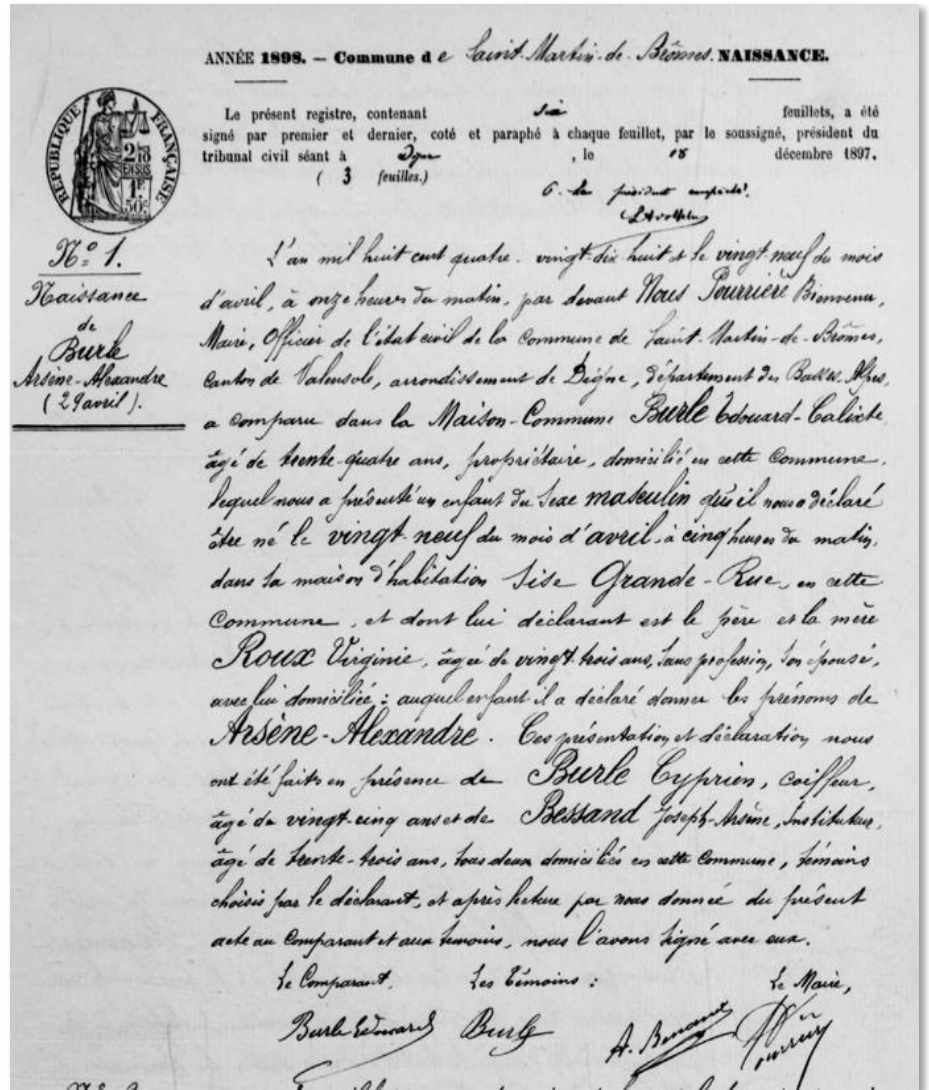 ANNÉE 1898. — Commune de Saint-Martin-de-Brômes. NAISSANCE.
Le présent registre, contenant six feuillets, a été
signé par premier et dernier, coté et paraphé à chaque feuillet, par le soussigné, président du
tribunal civil séant à Digne, le 18 décembre 1897.
( 3 feuilles.)
président empêché
RÉPUBLIQUE FRANÇAISE
2/10
EN SUS
1F
50c
N° 1.
Naissance
de
Burle
Arsène-Alexandre
(29 avril).
L'an mil huit cent quatre-vingt-dix-huit et le vingt-neuf du mois
d'avril, à onze heures du matin, par devant Nous Pourrière Bienvenu,
Maire, Officier de l'état civil de la Commune de Saint-Martin-de-Brômes,
Canton de Valensole, arrondissement de Digne, département des Basses-Alpes,
a comparu dans la Maison-Commune Burle Edouard-Calixte
âgé de trente-quatre ans, propriétaire, domicilié en cette Commune,
lequel nous a présenté un enfant du sexe masculin qu'il nous a déclaré
être né le vingt-neuf du mois d'avril, à cinq heures du matin,
dans sa maison d'habitation sise Grande-Rue, en cette
Commune, et dont lui déclarant est le père et la mère
Roux Virginie, âgée de vingt-trois ans, sans profession, son épouse,
avec lui domiciliée : auquel enfant il a déclaré donner les prénoms de
Arsène-Alexandre. Ces présentation et déclaration nous
ont été faits en présence de Burle Cyprien, coiffeur,
âgé de vingt-cinq ans et de Bessand Joseph-Arsène, Instituteur,
âgé de trente-trois ans, tous deux domiciliés en cette Commune, témoins
choisis par le déclarant, et après lecture par nous donnée du présent
acte au Comparant et aux témoins, nous l'avons signé avec eux.
Le Comparant, Les Témoins : Le Maire,
Burle Edouard Burle A. Bessand Pourrière